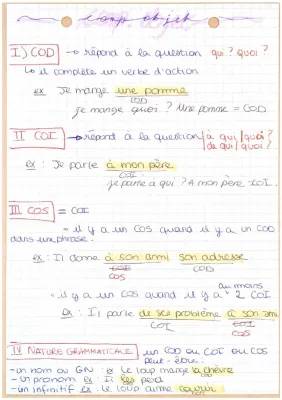 comp objet
I) COD → répond à la question qui ? quoi ?
↳ il complète un verbe d'action
ex Je mange une pomme
COD
je mange quoi ? Une pomme = COD
II COI → répond à la question à qui / quoi ?
de qui / quoi ?
ex : Je parle à mon père
COI
je parle à qui ? A mon père COI.
III COS = COI
= il y a un COS quand il y a un COD
dans une phrase.
ex : Il donne à son ami son adresse
COI COD
COS
= il y a un COS quand il y a au moins 2 COI
ex : Il parle de ses problème à son ami
COI COI
COS
IV NATURE GRAMMATICALE un COD ou COI ou COS
peut être :
- un nom ou GN ex le loup mange la chèvre
- un pronom ex Il les perd
- un infinitif ex le loup aime courir